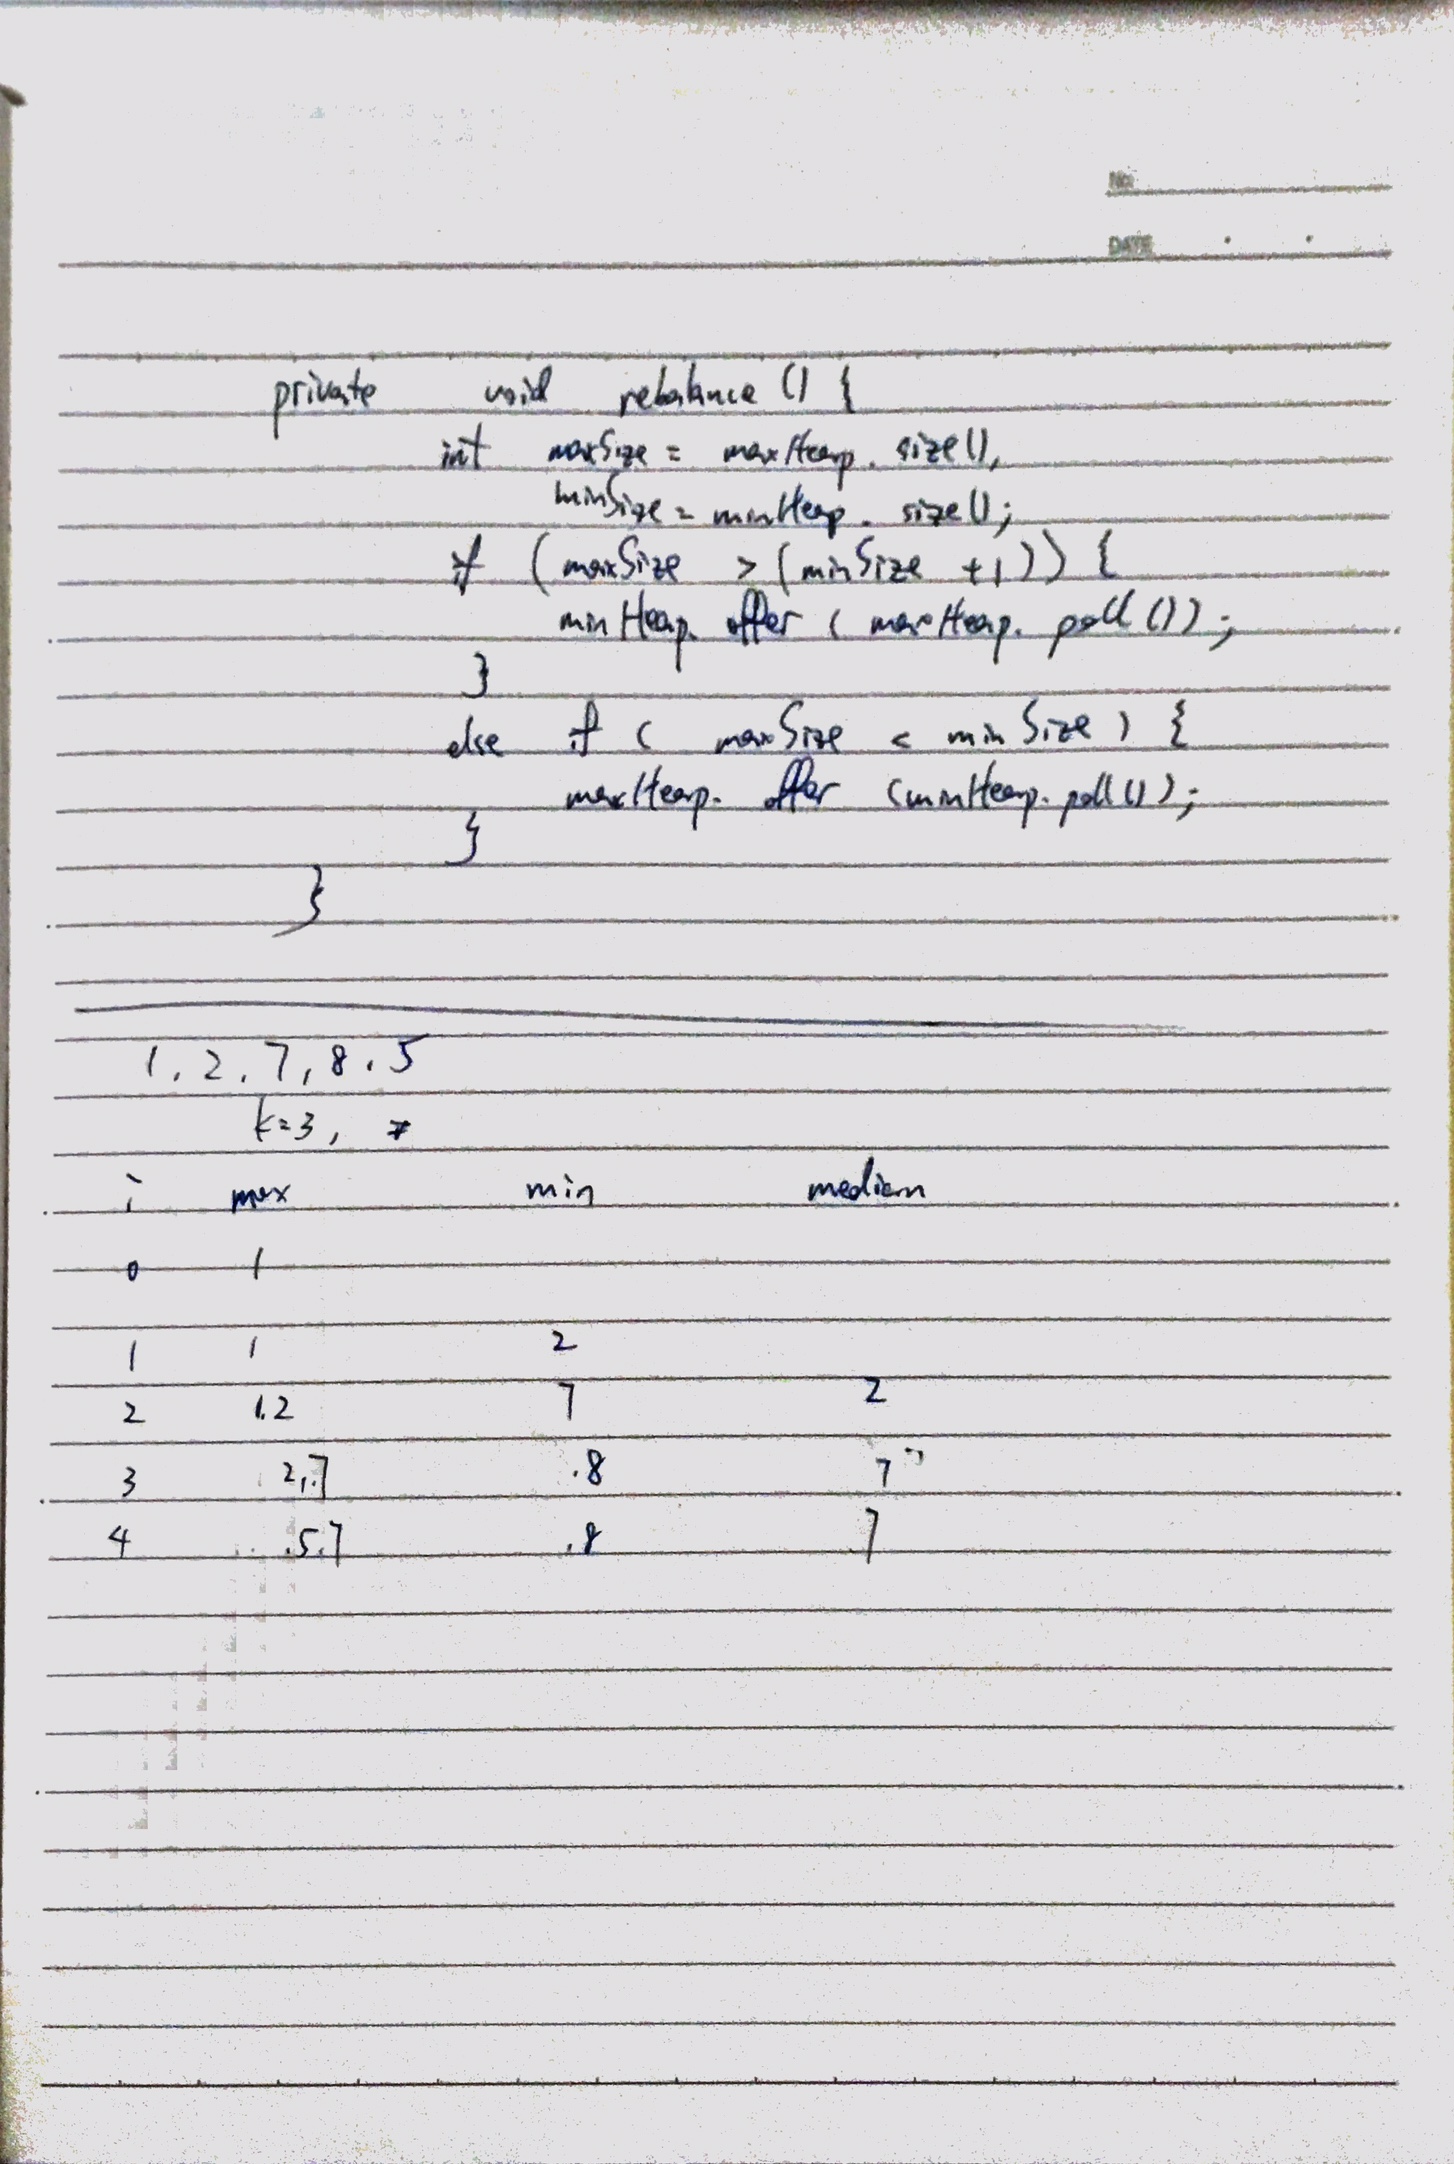 No.
DATE . .
private void rebalance () {
int maxSize = maxHeap. size(),
minSize = minHeap. size();
if (maxSize > (minSize +1)) {
minHeap. offer ( maxHeap. poll ());
}
else if ( maxSize < minSize ) {
maxHeap. offer (minHeap. poll ());
}
}
1, 2, 7, 8, 5
k=3,
i max min median
0 1
1 1 2
2 1.2 7 2
3 2,.7 .8 7
4 .5.7 .8 7